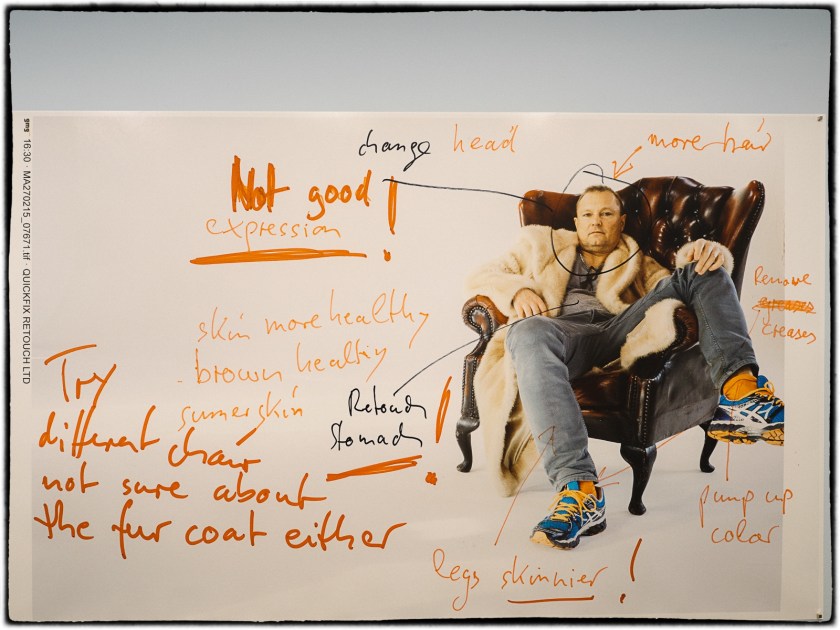 gmg 16:30 · MA270215_07671.tif · QUICKFIX RETOUCH LTD
change head
more hair
Not good !
expression
Remove
creases
creases
skin more healthy
brown healthy
sumerskin
Retouch
Stomach !
Try
different chair
not sure about
the fur coat either
pump up
color
legs skinnier !